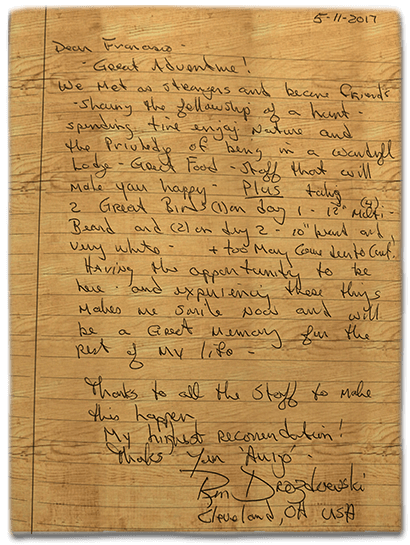 5-11-2017
Dear Francisco -
- Great Adventure!
We Met as strangers and became friends
- Sharing the fellowship of a hunt -
spending time enjoy Nature and
the Priviledg of being in a wonderful
Lodge - Great Food - Staff that will
make you happy - PLUS taking
2 Great Birds (1) on day 1 - 12" Multi- (4)
Beard and (2) on day 2 - 10" beard and
very white - + too Many
Having the opportunity to be
here and experiencing these things
makes me smile Now and will
be a Great Memory for the
Rest of My life -
Thanks to all the Staff to make
this happen
My highest recomendation!
Thanks Your 'Amigo' -
Ron Drozdowski
Cleveland, OH USA